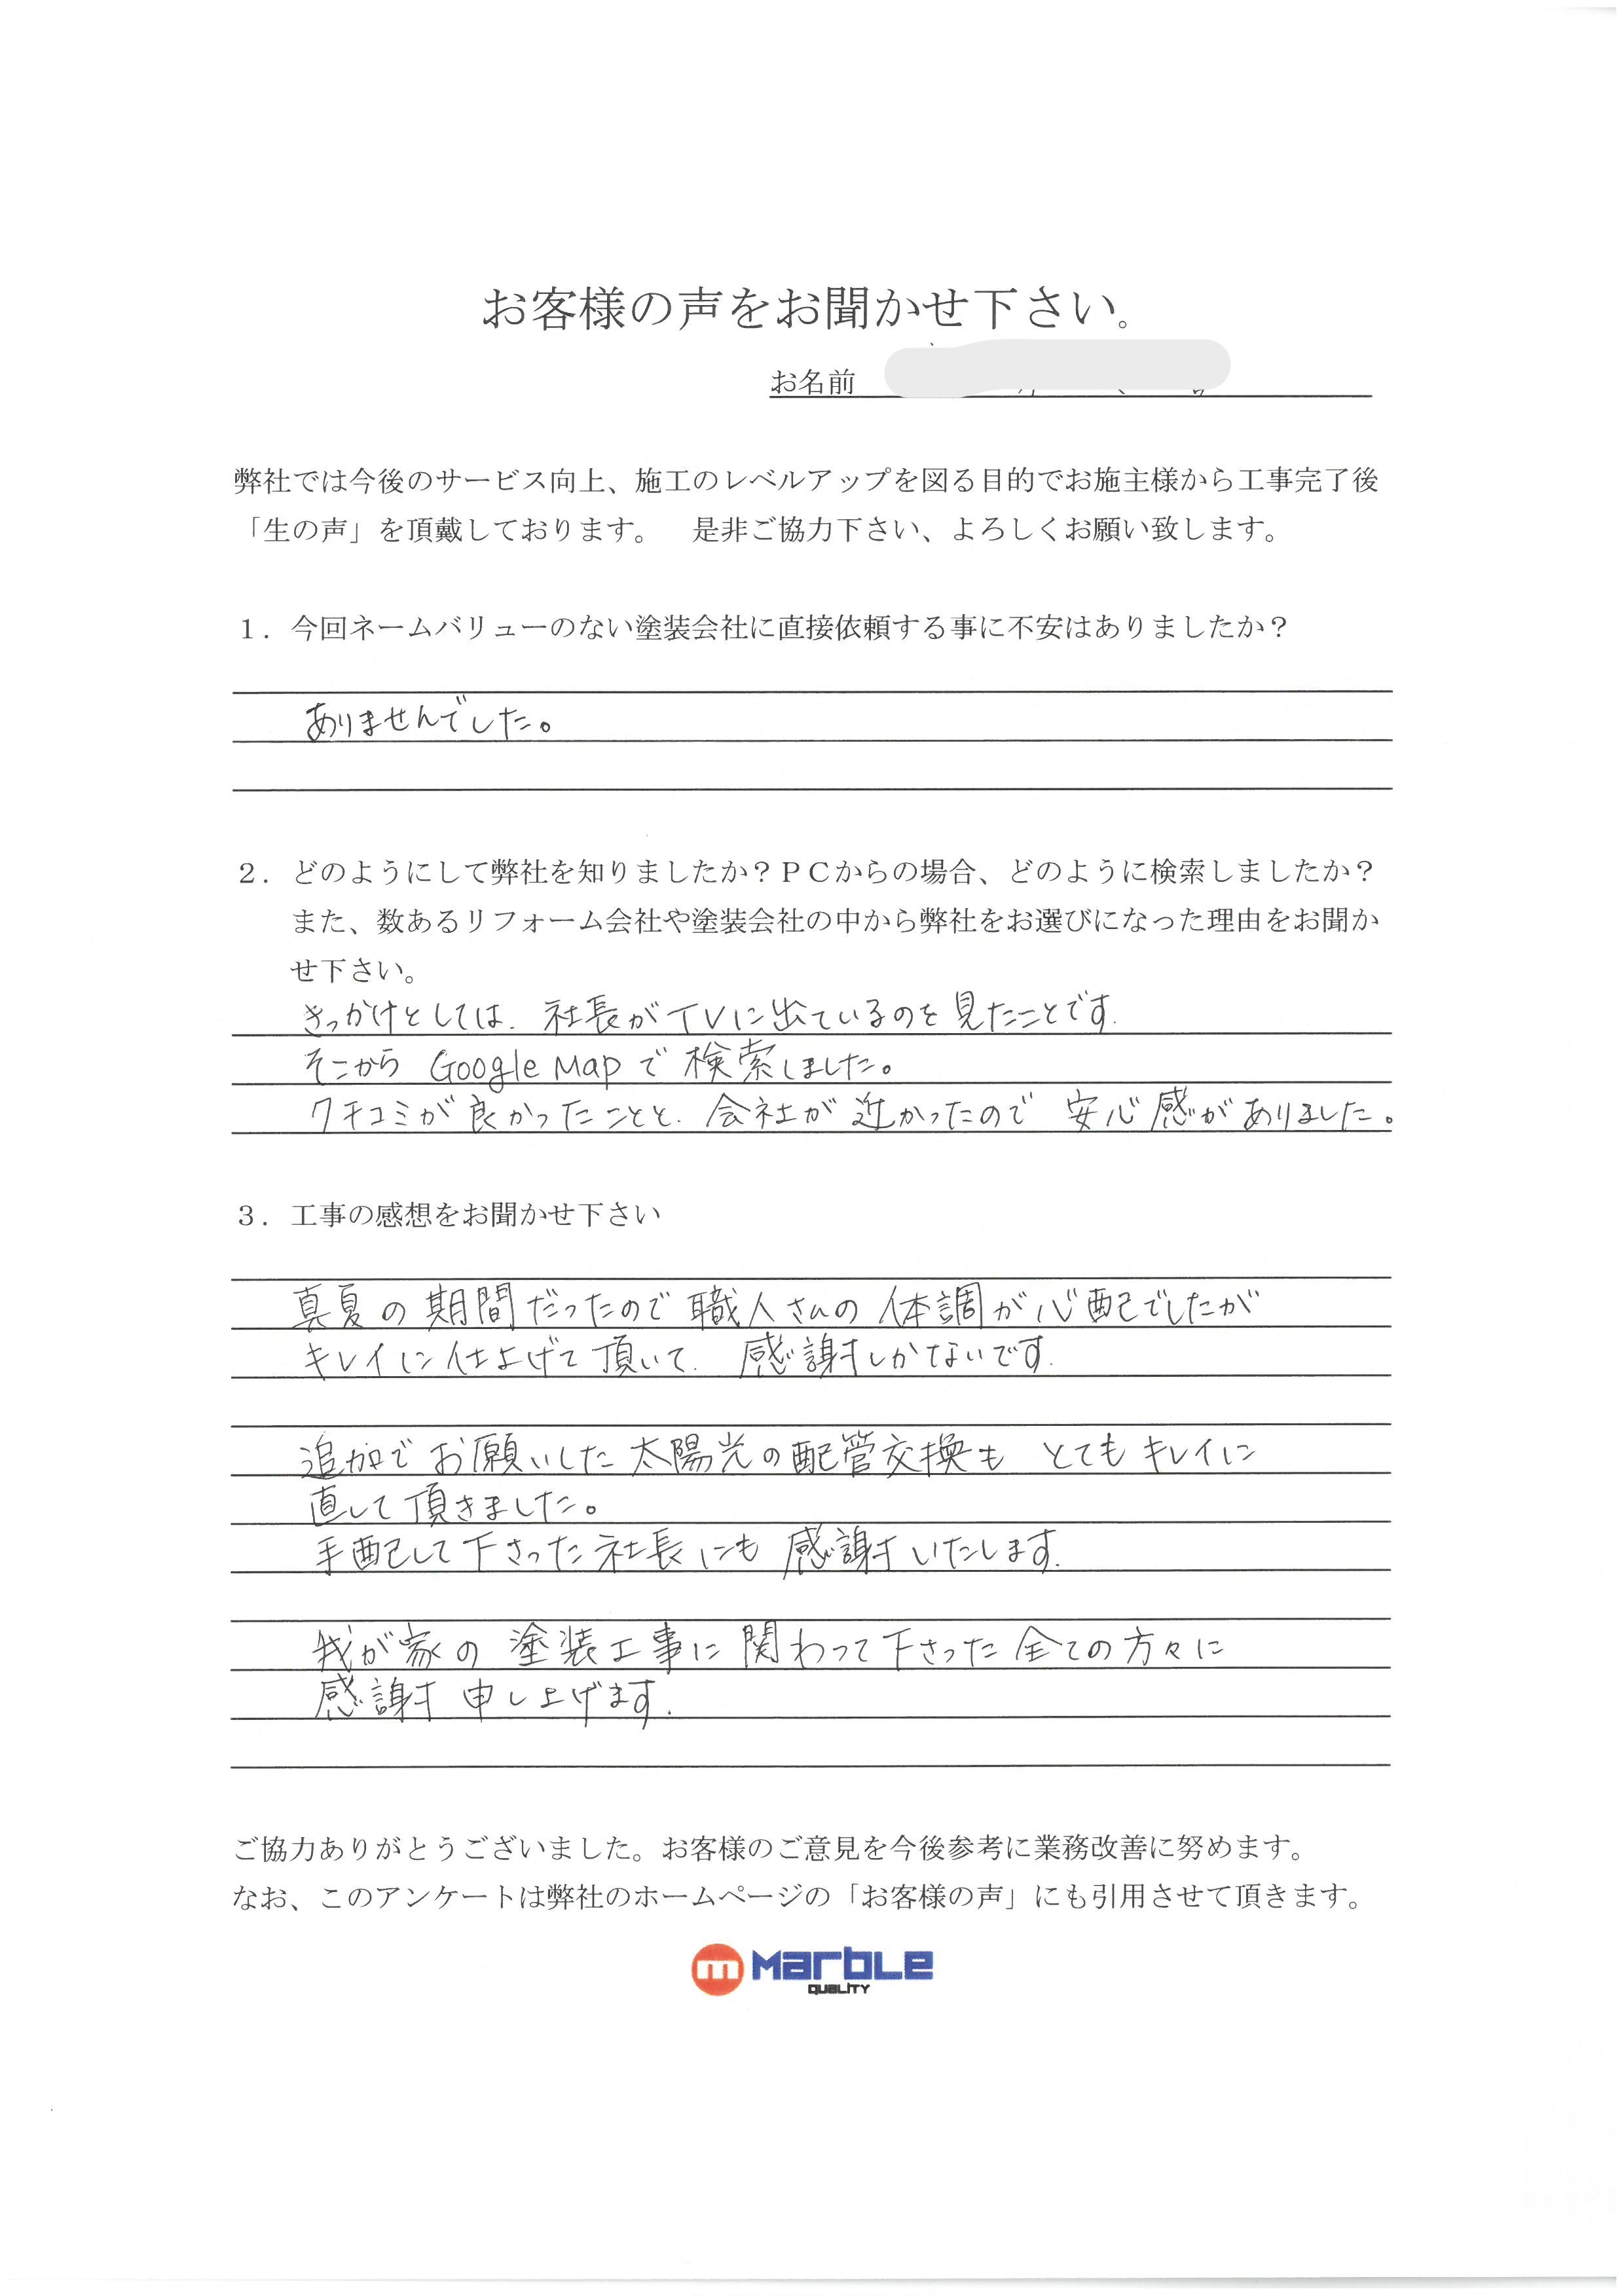 お客様の声をお聞かせ下さい。
お名前
弊社では今後のサービス向上、施工のレベルアップを図る目的でお施主様から工事完了後
「生の声」を頂戴しております。　是非ご協力下さい、よろしくお願い致します。
１．今回ネームバリューのない塗装会社に直接依頼する事に不安はありましたか？
ありませんでした。
２．どのようにして弊社を知りましたか？ＰＣからの場合、どのように検索しましたか？
また、数あるリフォーム会社や塗装会社の中から弊社をお選びになった理由をお聞か
せ下さい。
きっかけとしては、社長がTVに出ているのを見たことです。
そこから Google Map で検索しました。
クチコミが良かったことと、会社が近かったので安心感がありました。
３．工事の感想をお聞かせ下さい
真夏の期間だったので職人さんの体調が心配でしたが
キレイに仕上げて頂いて、感謝しかないです。
追加でお願いした太陽光の配管交換も とてもキレイに
直して頂きました。
手配して下さった社長にも感謝いたします。
我が家の塗装工事に関わって下さった全ての方々に
感謝申し上げます。
ご協力ありがとうございました。お客様のご意見を今後参考に業務改善に努めます。
なお、このアンケートは弊社のホームページの「お客様の声」にも引用させて頂きます。
m MarbLe
QUALITY